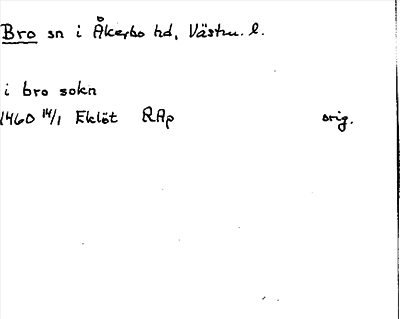 Bro sn i Åkerbo hd, Västm. l.
i bro sokn
1460 14/1 Eklöt RAp orig.